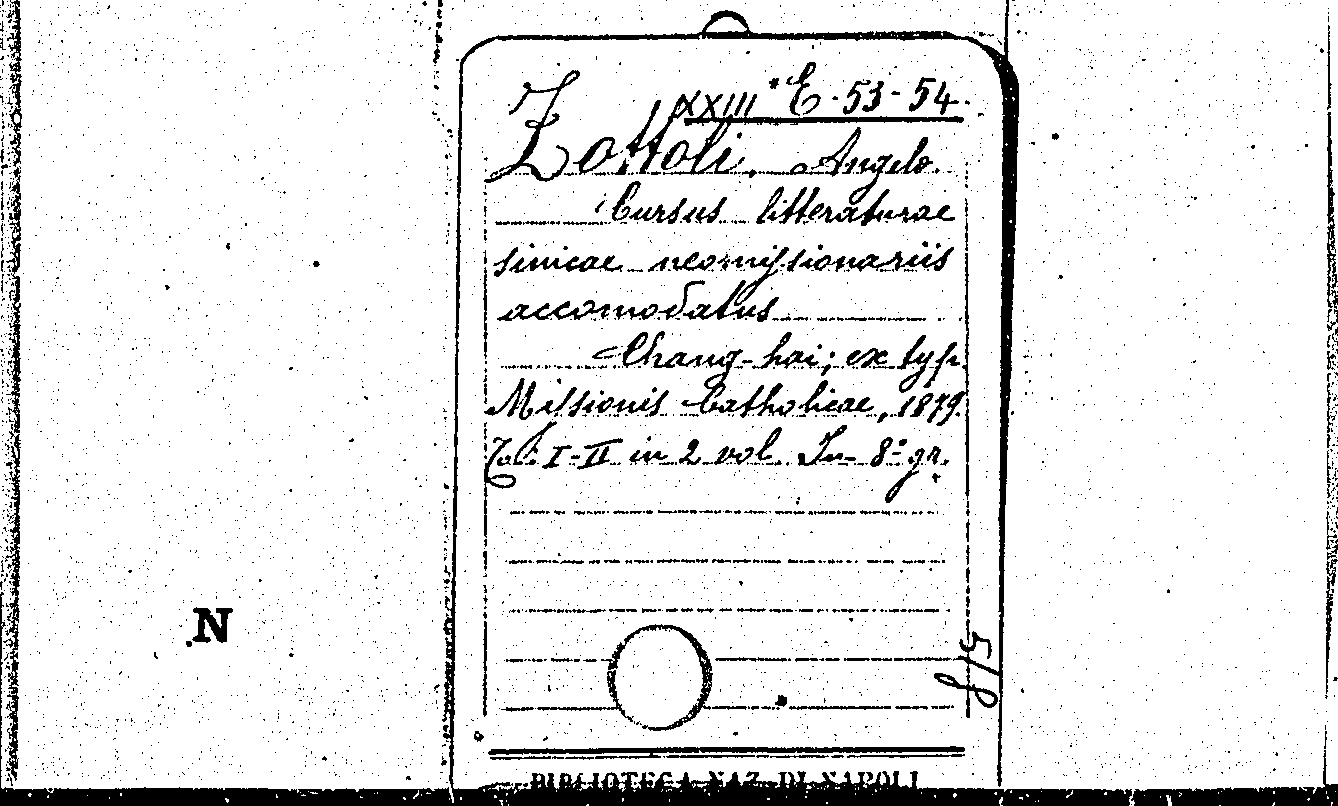 XXIII E. 53-54.
Zottoli, Angelo.
Cursus litteraturae
sinicae neomissionariis
accomodatus
Chang-hai; ex typ.
Missionis Catholicae, 1879.
I-II in 2 vol. In-8° gr.
N
BIBLIOTECA NAZ. DI NAPOLI